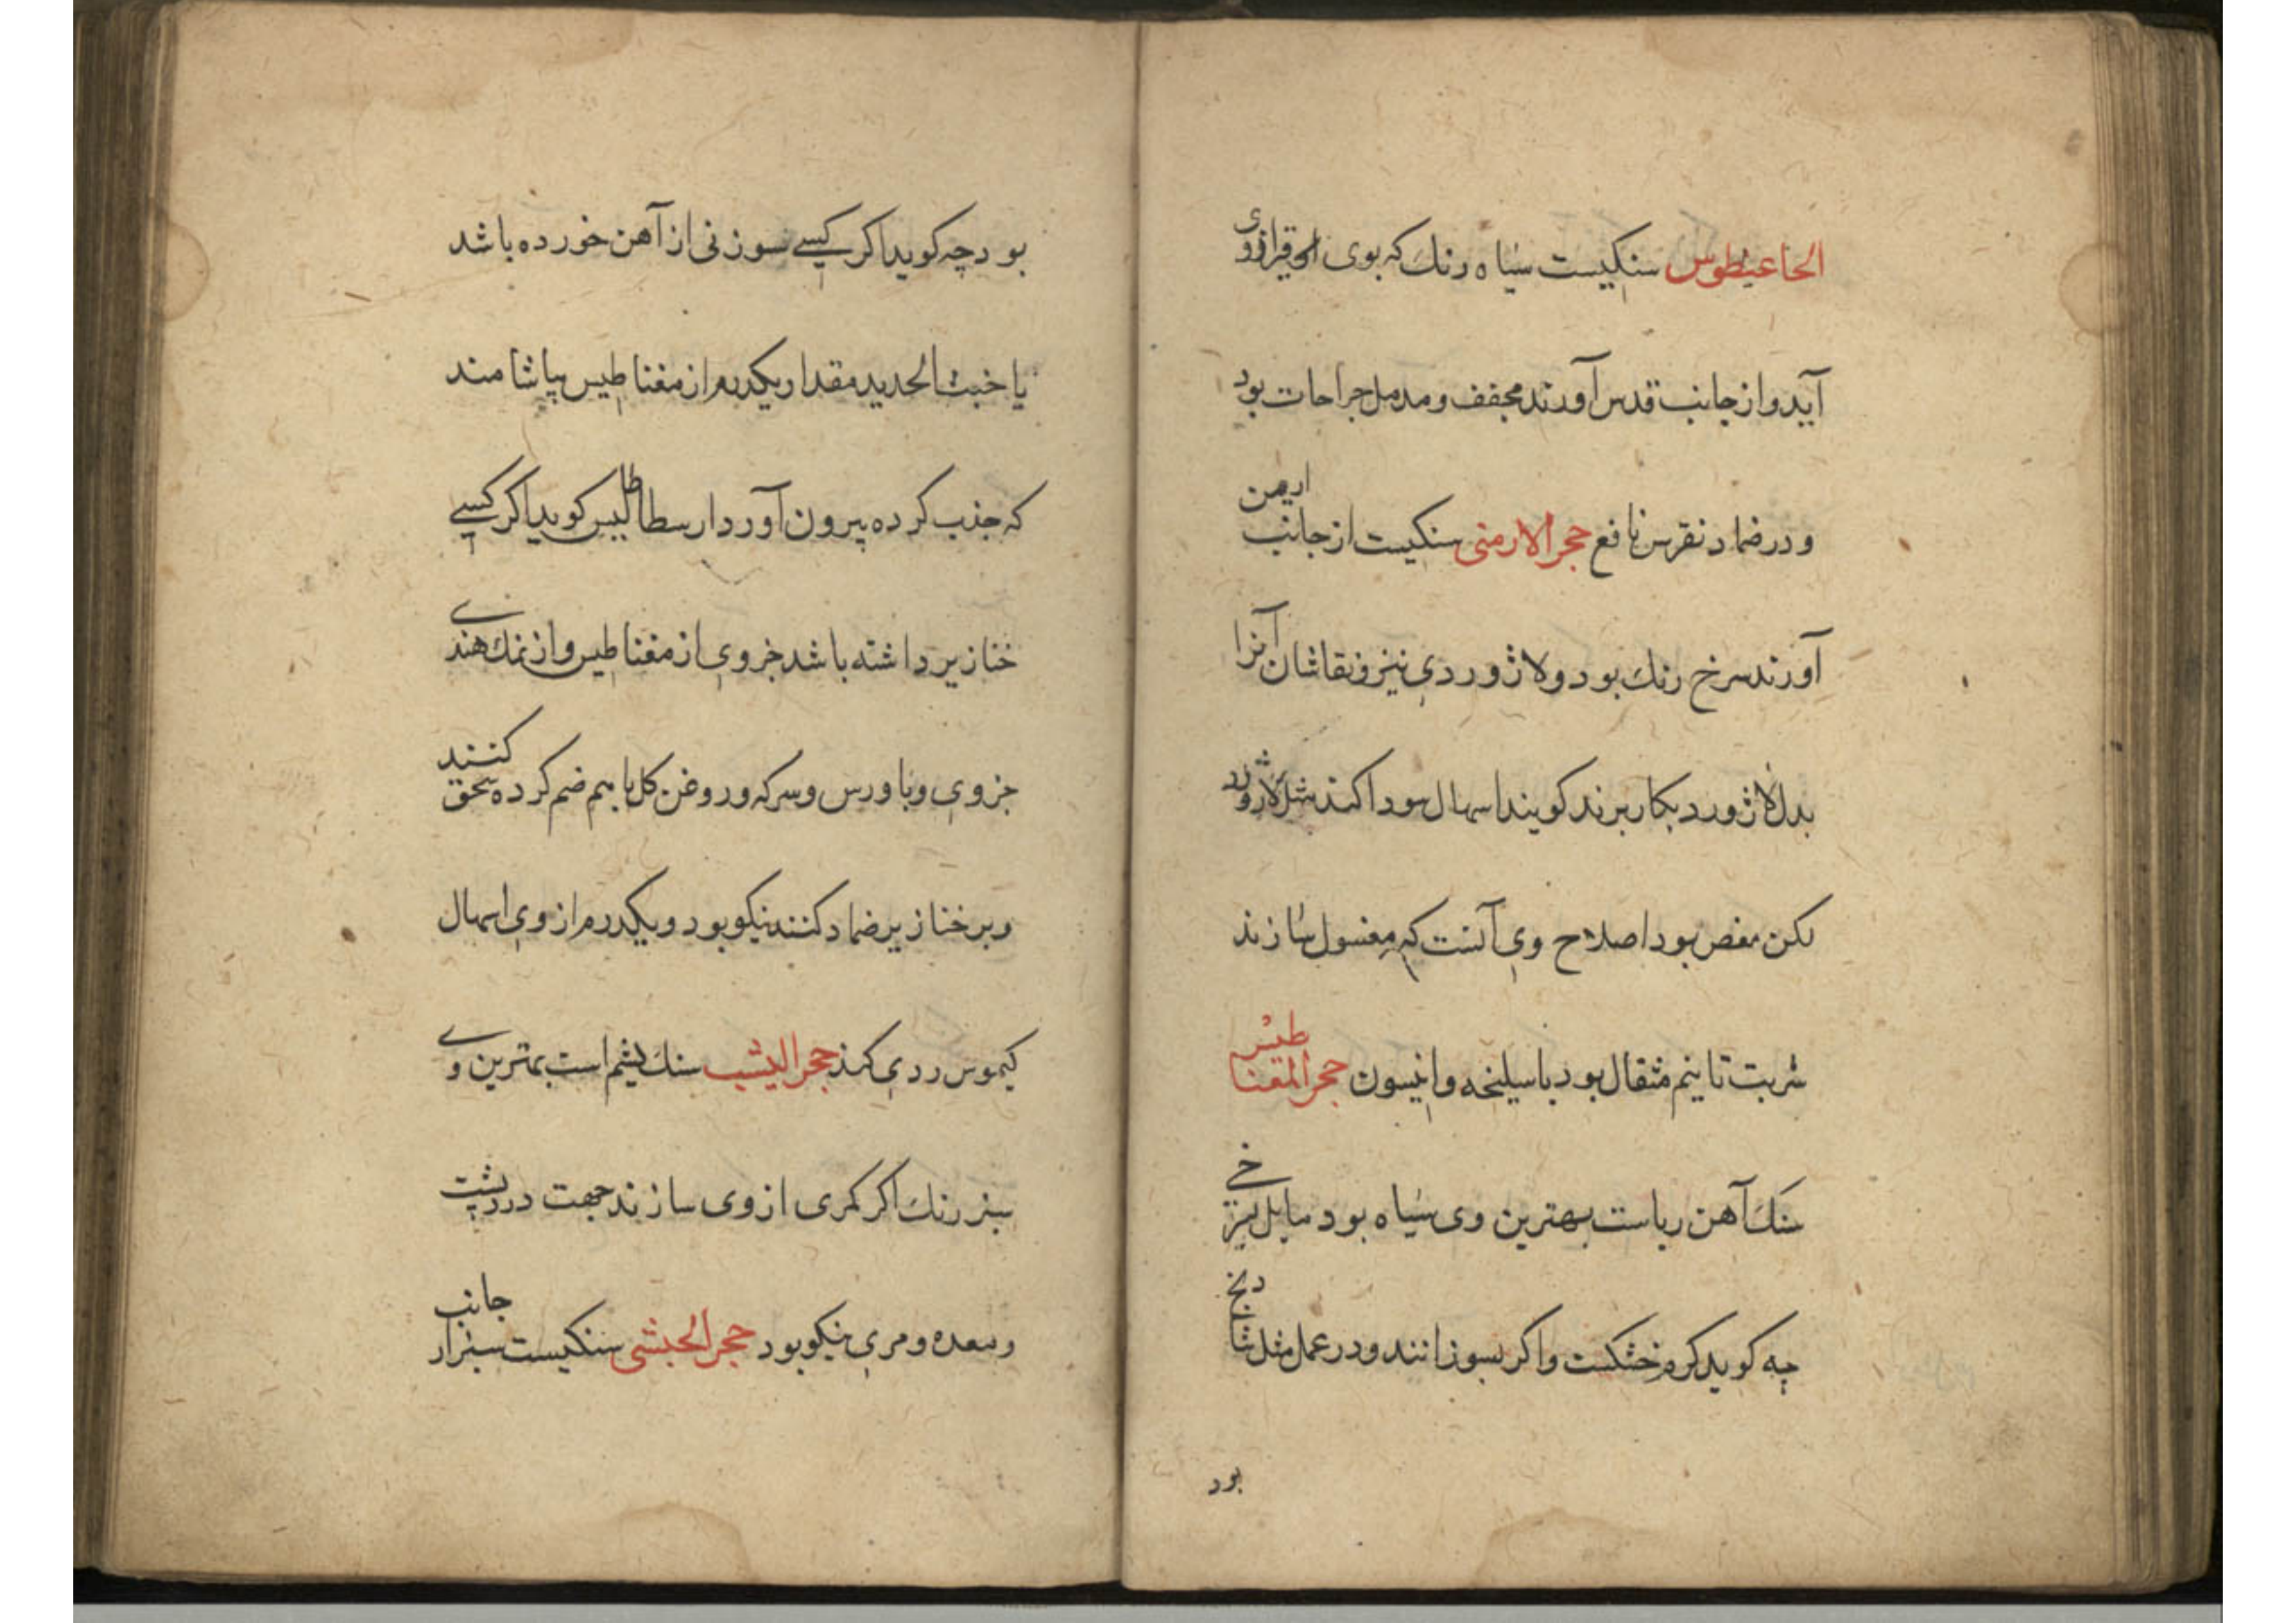 الحاعیطوس سنکیست سیاه رنك که بوی قیر ازوی
آید و از جانب قدس آورند مجفف و مدمل جراحات بود
و در ضماد نقرس نافع حجر الارمنی سنکیست از جانب ارمن
آورند سرخ رنك بود و لاژوردی نیز و نقاشان آنرا
بدل لاژورد بکار برند کویند اسهال سودا کند مثل لاژورد
لکن مغص بود اصلاح وی آنست که مغسول سازند
شربت تا نیم مثقال بود با سلیخه و انیسون حجر المقناطیس
سنك آهن رباست بهترین وی سیاه بود مایل بسرخی
چه کوید کرم و خشکست و اکر بسوزانند و در عمل مثل شادنج
بود
بود چه کوید اکر کسی سوزنی از آهن خورده باشد
یا خبث الحدید مقدار یکدرم از مغناطیس بیاشامند
که جذب کرده بیرون آورد ارسطاطالیس کوید اکر کسی
خنازیر داشته باشد جزوی از مغناطیس و از نمك هندی
جزوی و با ورس و سرکه و روغن کل با هم ضم کرده سحق کنند
و بر خنازیر ضماد کنند نیکو بود و یکدرم از وی اسهال
کیموس ردی کند حجر الیشب سنك یشم است بهترین وی
سبز رنك اکر کمری از وی سازند جهت درد پشت
و معده و مری نیکو بود حجر الحبشی سنکیست سبز از جانب